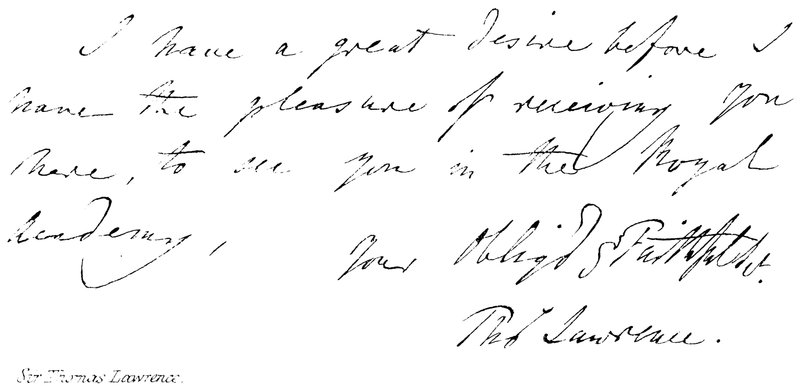 I have a great desire before I
have the pleasure of receiving you
there, to see you in the Royal
Academy,
Your Oblig'd & Faithful St.
Thos Lawrence.
Sir Thomas Lawrence.